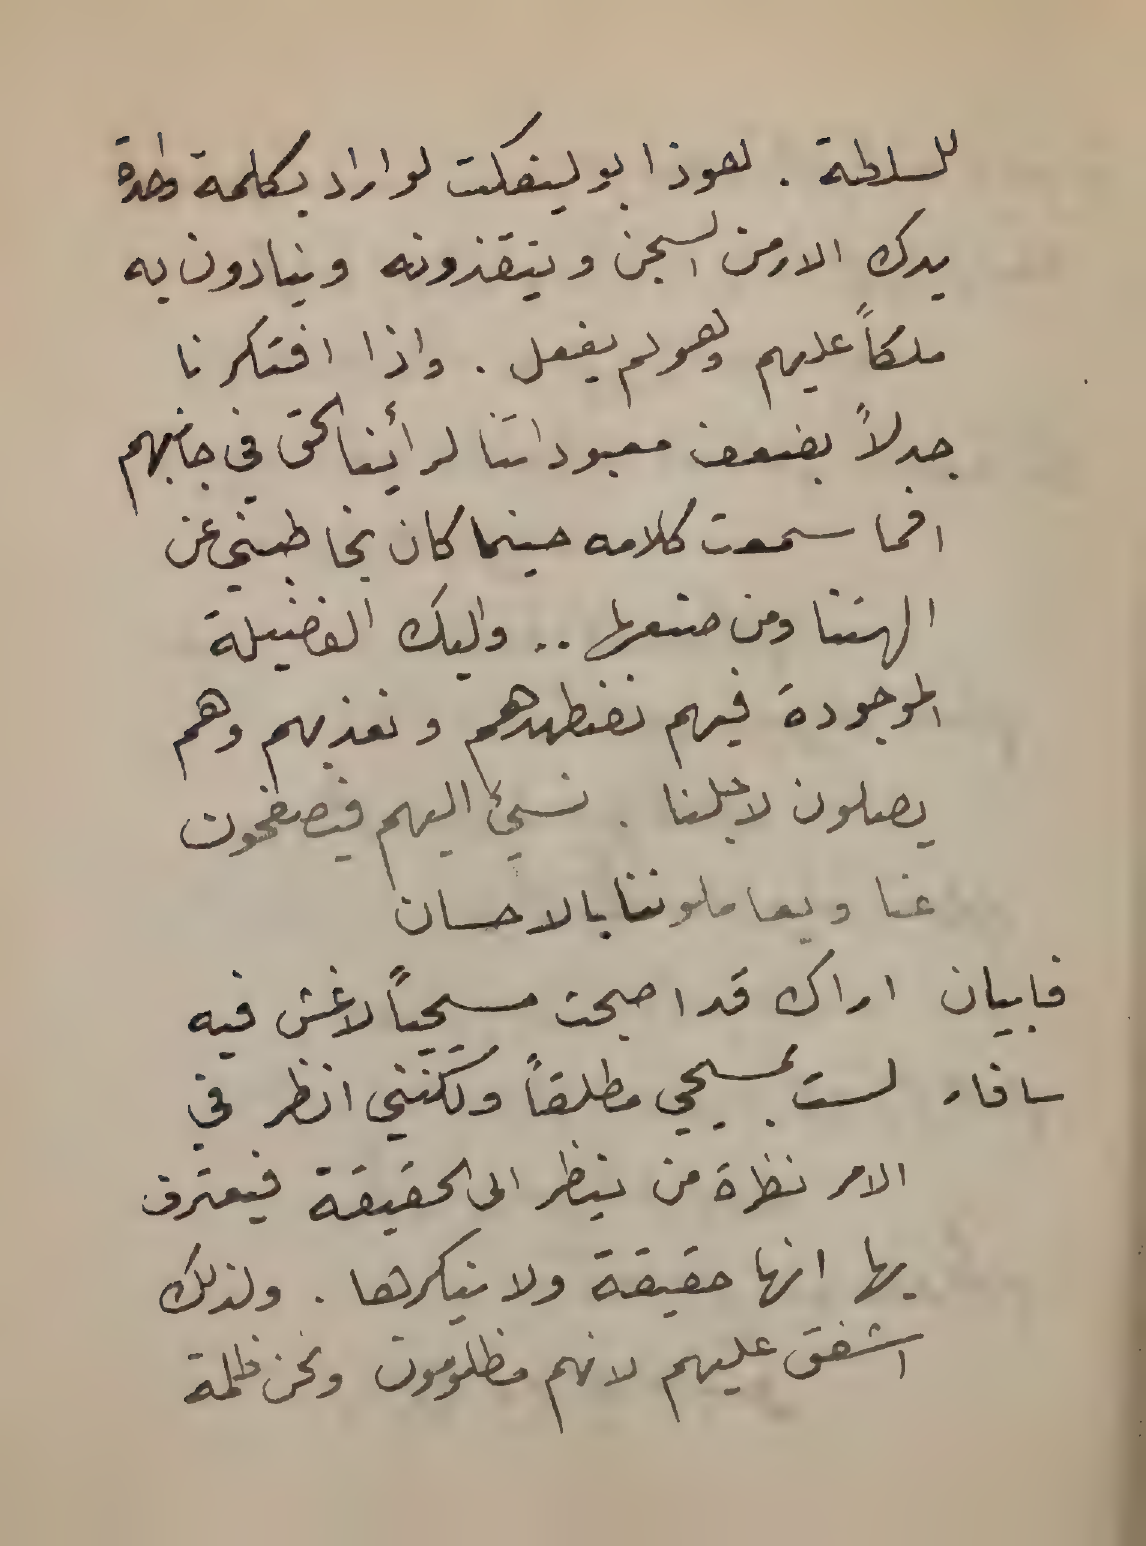 للسلطة . هوذا بوليفكت لو اراد بكلمة واحدة
يدك الارمن السجن وينقذونه وينادون به
ملكاً عليهم وهو لم يفعل . واذا افتكرنا
جدلاً بضعف معبوداتنا لرأينا الحق في جانبهم
افما سمعت كلامه حينما كان يخاطبني عن
الهتنا ومن صنعها .. واليك الفضيلة
الموجودة فيهم نضطهدهم ونعذبهم وهم
يصلون لاجلنا . نسيئ اليهم فيصفحون
عنا ويعاملوننا بالاحسان
فابيان اراك قد اصبحت مسيحياً لاغش فيه
سافار لست بمسيحي مطلقاً ولكنني انظر في
الامر نظرة من ينظر الى الحقيقة فيعترف
بها انها حقيقة ولا ينكرها . ولذلك
اشفق عليهم لانهم مظلومون ونحن ظلمة